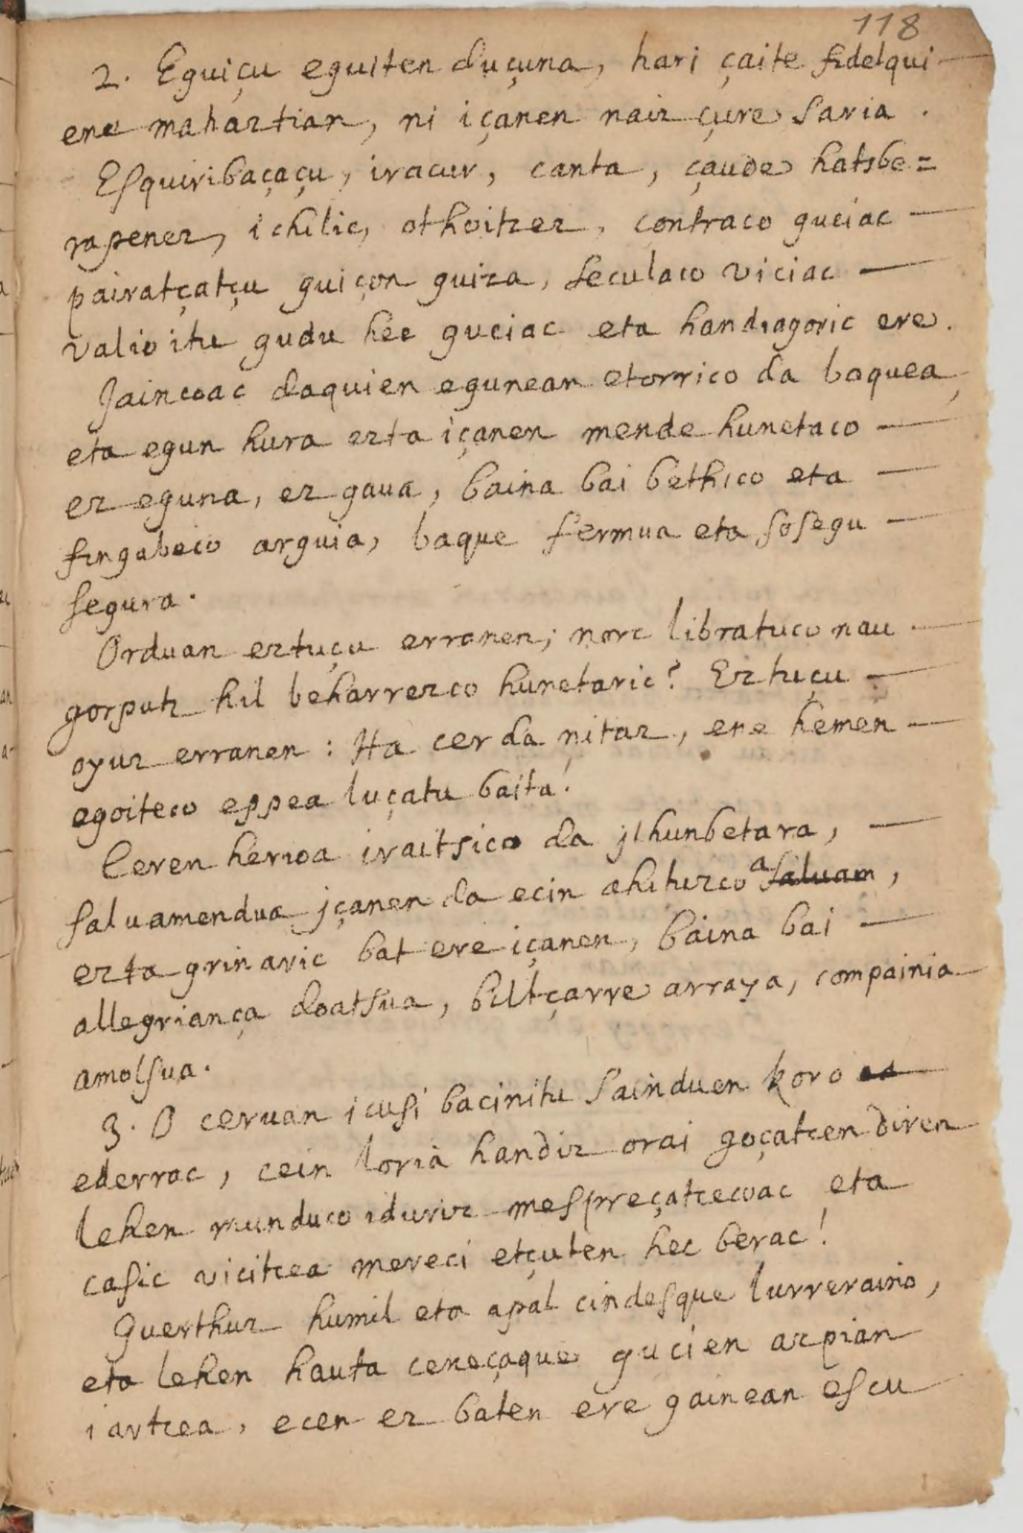 118
2. Eguiçu eguiten duçuna, hari çaite fidelqui
ene mahaztian, ni içanen naiz çure saria.
Esquiribaçaçu, iracur, canta, çaude hatsbe=
rapenez, ichilic, othoitzez, contraco guciac
pairatçatçu guiçon guiza, seculaco viciac
valio itu gudu hec guciac eta handiagoric ere.
Jaincoac daquien egunean etorrico da baquea,
eta egun hura ezta içanen mende hunetaco
ez eguna, ez gaua, baina bai bethico eta
fingabeco arguia, baque fermua eta sosegu
segura.
Orduan eztuçu erranen; norc libratuco nau
gorputz hil beharrezco hunetaric? Eztuçu
oyuz erranen: Ha cer da nitaz, ene hemen
egoiteco eppea luçatu baita!
Ceren herioa iraitsico da jlhunbetara,
saluamendua jçanen da ecin ahituzcoa saluam,
ezta grinaric bat ere içanen, baina bai
allegriança doatsua, biltçarre arraya, compainia
amolsua.
3. O ceruan icusi bacinitu sainduen koro
ederrac, cein loria handiz orai goçatcen diren
lehen munduco iduriz mesprreçatcecoac eta
casic vicitcea mereci etçuten hec berac!
Guerthuz humil eta apal cindesque lurreraino,
eta lehen hauta ceneçaque gucien azpian
iartcea, ecen ez baten ere gainean escu